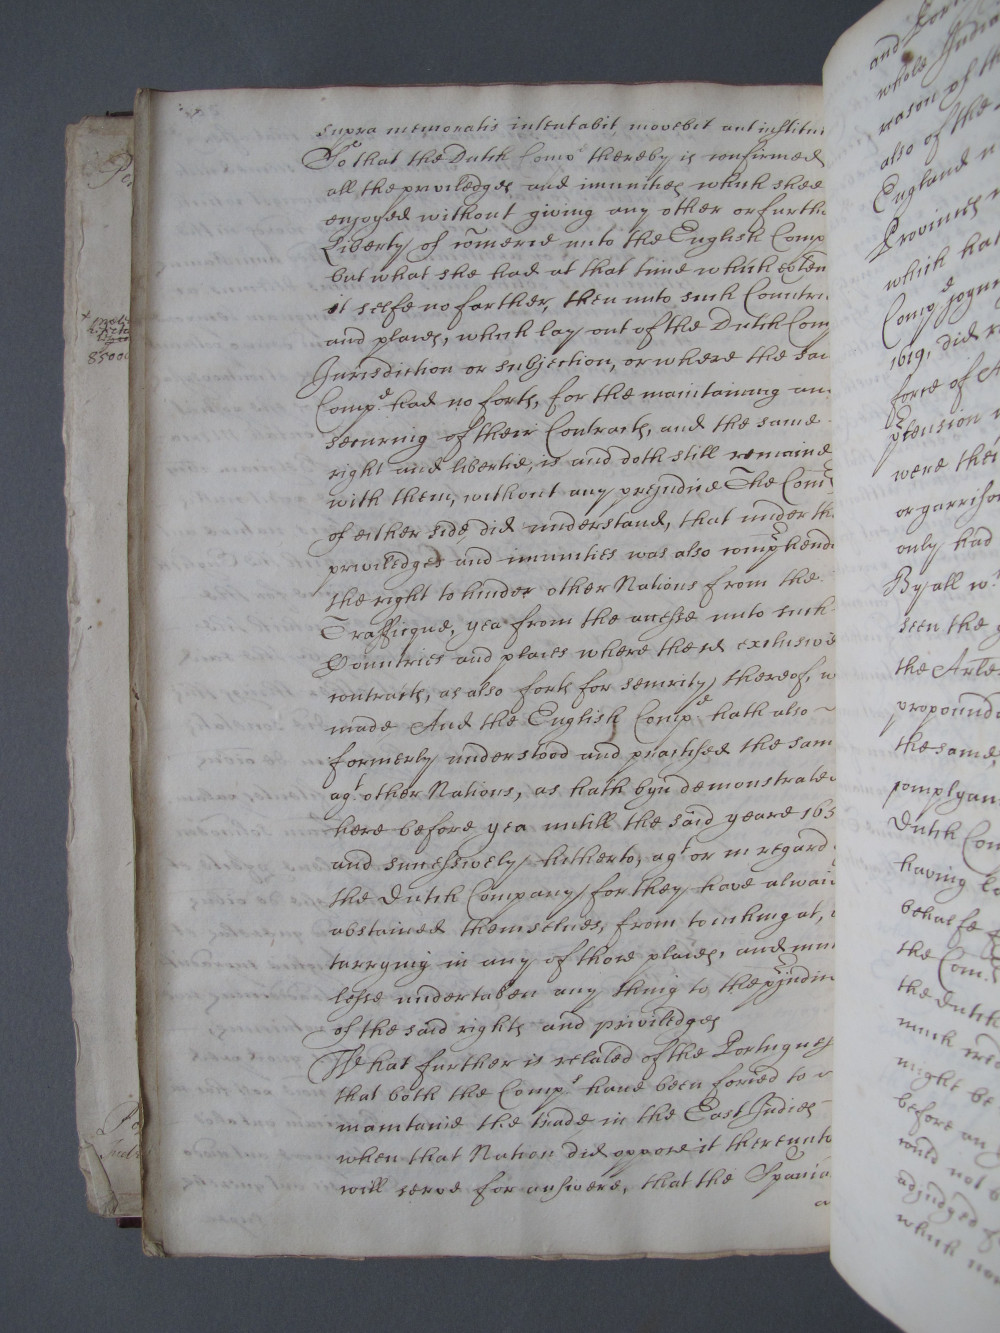 supra memoratis intentabit movebit aut institu
So that the Dutch Comp.e thereby is confirmed
all the priviledges and imunities which shee
enjoyed without giving any other or furthe
Liberty of cõmerce unto the English Comp
but what she had at that time which exten
it selfe no farther, then unto such Countri
and places, which lay out of the Dutch Com
Jurisdiction or subjection, or where the sai
Comp.e had no forts, for the maintaining an
securing of their Contracts, and the same
right and libertie, is and doth still remaine
with them, without any prejudice The Com
of either side did understand, that under th
priviledges and imunities was also comphend
the right to hinder other Nations from the
Trafficque, yea from the accesse unto such
Countries and places where the sd exclusive
contracts, as also forts for security thereof, w
made And the English Comp.e hath also
formerly understood and practised the sam
agt other Nations, as hath byn demonstrated
here before yea untill the said yeare 165
and successively hitherto, agt or in regard
the Dutch Company, for they have alwai
abstained themselves, from touching at,
tarrying in any of those places, and mu
lesse undertaken any thing to the pjudi
of the said rights and priviledges
What further is related of the Portugues
that both the Comp.s have been forced to
maintaine the trade in the East Indies
when that Nation did oppose it thereunto
will serve for answere, that the Spania
a
85000
and Por
whole India
reason of th
also of the
England
Provinces
which hat
Comp.e joyn
1619, did
force of A
ptension
were thei
or garrison
only had
By all wch
seen the
the Artles
propound
the same,
complyan
Dutch Com
having
behalfe
the Com
the Dutch
much
might be
before an
could not
adjudged
which